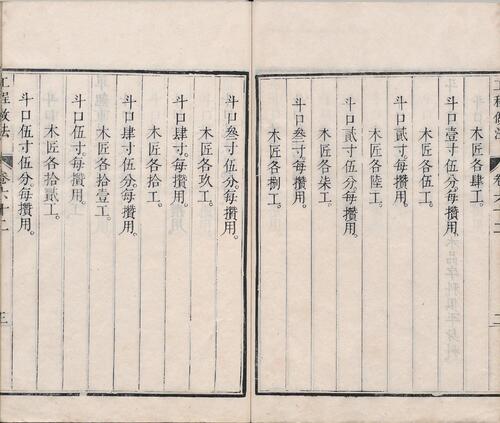 木匠各肆工。
斗口壹寸伍分。每攢用。
木匠各伍工。
斗口貳寸。每攢用。
木匠各陸工。
斗口貳寸伍分。每攢用。
木匠各柒工。
斗口叁寸。每攢用。
木匠各捌工。
斗口叁寸伍分。每攢用。
木匠各玖工。
斗口肆寸。每攢用。
木匠各拾工。
斗口肆寸伍分。每攢用。
木匠各拾壹工。
斗口伍寸。每攢用。
木匠各拾貳工。
斗口伍寸伍分。每攢用。
工程做法 卷六十二 三